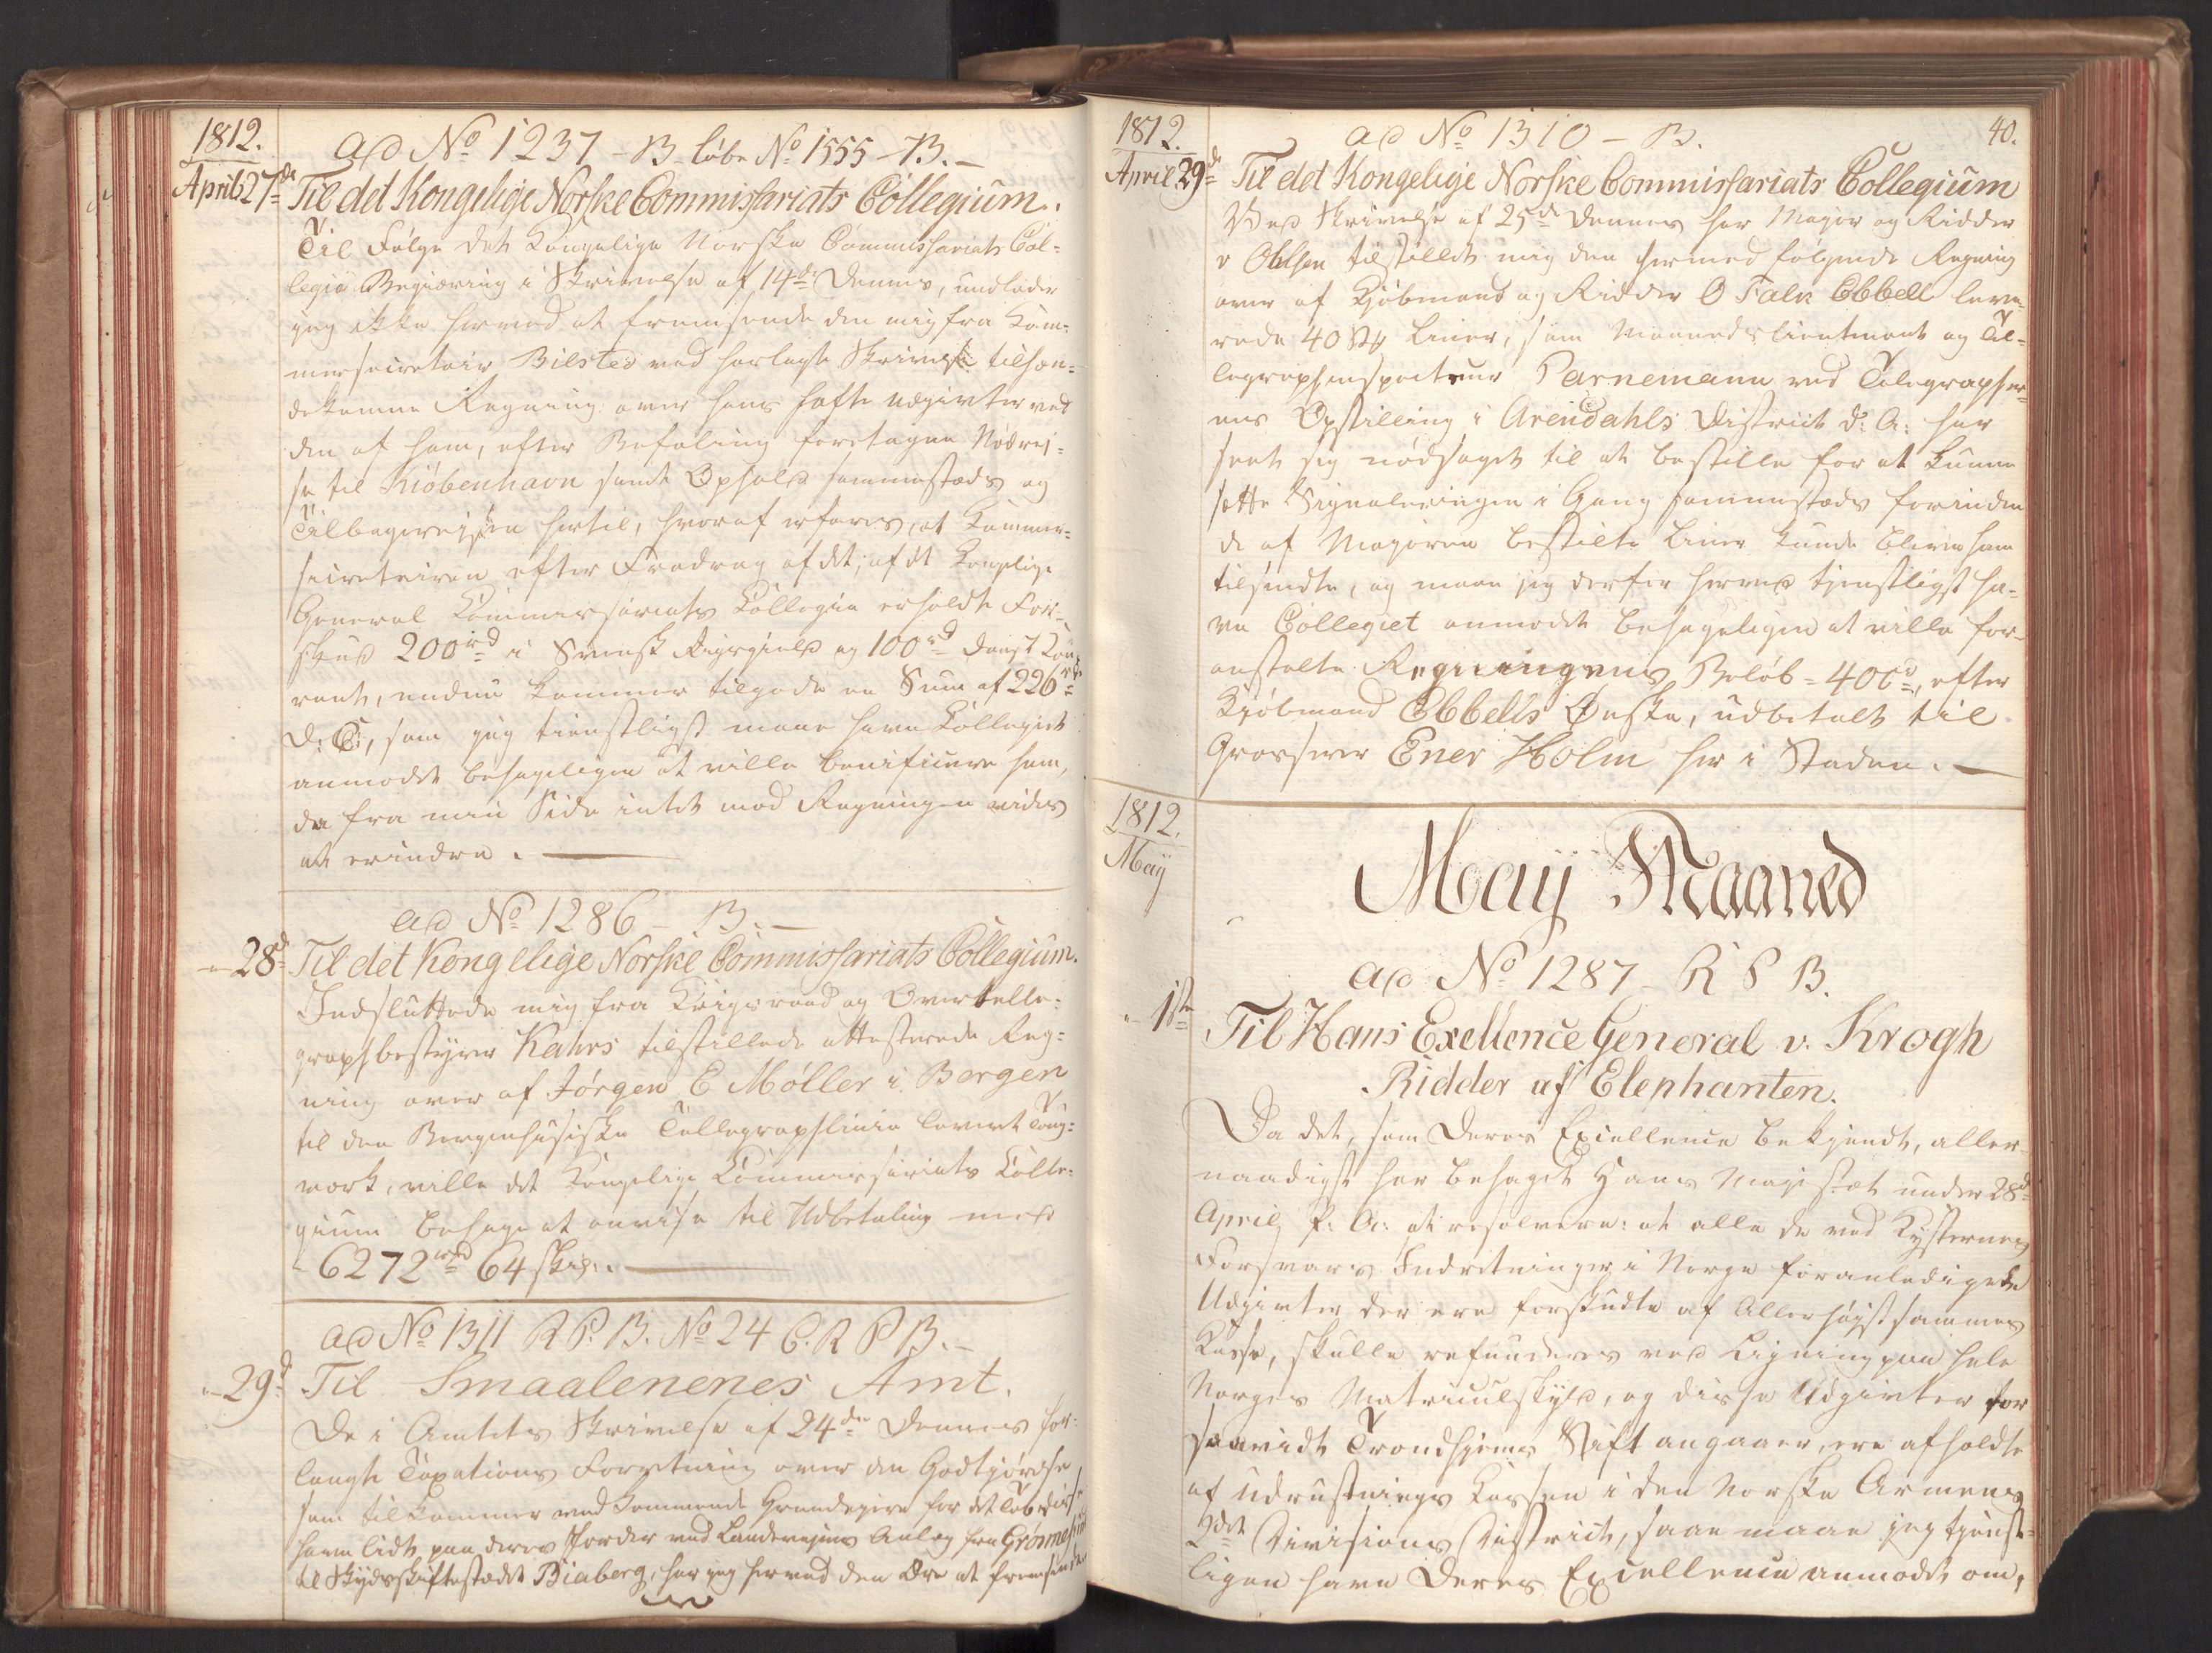 1812.
ad No 1237 - B. løbe No 1555 - B. -
April 27de
Til det Kongelige Norske Commissariats Collegium.
Til Følge det Kongelige Norske Commissariats Col-
legii Begiæring i Skrivelse af 14de dennes, undlader
jeg ikke hermed at fremsende den mig fra Kam-
mersecretair Bilsted ved herlagte Skrivelse tilhæn-
dekomne Regning over hans hafte Udgivter ved
den af ham, efter Befaling foretagne Rei-
se til Kiöbenhavn samt Ophold sammesteds og
Tilbagereisen hertil, hvoraf erfares, at Kammer-
secretairen efter Fradrag af det, af det Kongelige
General Commissariats Collegie erholdte For-
skud 200rd i Svensk Rigsgield og 100rd dansk Cou-
rant, endnu kommer tilgode en Sum af 226rd
D: C:, som jeg tienstligst maae have Collegiet
anmodet behageligen at ville benificere ham,
da fra min Side intet mod Regningen vides
at erindre. —
ad No 1286 - B. -
- 28de
Til det Kongelige Norske Commissariats Collegium.
Indsluttede mig fra Krigsraad og Overtelle-
graphbestyrer Kahrs tilstillede attesterede Reg-
ning over af Jörgen E Möller i Bergen
til den Bergenhusiske Tellegraphlinie leveret Toug-
værk, ville det Kongelige Commissariats Colle-
gium behage at anvise til Udbetaling med
- 6272rd 64 skil. —
ad No 1311 R P. B. No 24 C. R P B. -
- 29de
Til Smaalenenes Amt.
De i Amtets Skrivelse af 24de dennes for-
langte Taxations Forretning over den Godtgjørelse
som tilkommer vedkommende Grundeiere for det Tab disse
have lidt paa deres Jorder ved Landeveiens Anlæg fra
til Skydsskiftestedet Biaberg, har jeg herved den Ære at fremsende
1812.
ad No 1310 - B.
40.
April 29de
Til det Kongelige Norske Commissariats Collegium
Ved Skrivelse af 25de dennes har Major og Ridder
v Ohlsen tilstillet mig den hermed følgende Regning
over af Kjöbmand og Ridder O Falk Ebbell leve-
rede 40 Liner, som Maanedslieutnant og Tel-
legraphinspecteur Parnemann ved Telegrapher-
nes Opstilling i Arendahls District d: A: har
seet sig nödsaget til at bestille for at kunne
sætte Signaleringen i Gang sammesteds forinden
de af Majoren bestilte Liner kunde blive ham
tilsendte, og maae jeg derfor herved tjenstligst ha-
ve Collegiet anmodet behageligen at ville for-
anstalte Regningens Belöb = 40rd, efter
Kjöbmand Ebbells Önske, udbetalt til
Grosserer Ener Holm her i Staden. —
1812.
Maij
Maij Maaned
ad No 1287 - R P B.
- 1ste
Til Hans Exellence General v. Krogh
Ridder af Elephanten.
Da det, som Deres Excellence bekjendt, aller-
naadigst har behaget Hans Majestæt under 28de
April f: A: at resolvere: at alle de ved Kysternes
Forsvars Indretninger i Norge foranledigede
Udgivter der ere forskudte af Allerhöistsammes
Kasse, skulle refunderes ved Ligning paa hele
Norges Matriculskyld, og disse Udgivter for
saavidt Trondhjems Stift angaaer, ere afholdte
af Udrustnings Kassen i den Norske Armees
2det Divisions District, saa maae jeg tjenst-
ligen have Deres Excellence anmodet om,